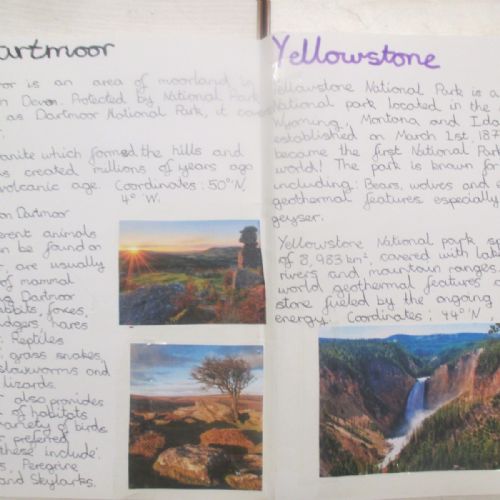 artmoor
or is an area of moorland in
n Devon. Protected by National Park
as Dartmoor National Park, it
anite which formed the hills and
s created millions of years ago
volcanic age. Coordinates: 50°N,
4°W.
on Dartmoor
erent animals
n be found on
are usually
of mammal
ng Dartmoor
abbits, foxes,
adgers, hares
: Reptiles
grass snakes,
slowworms and
lizards.
also provides
of habitats
variety of birds
s preferred
these include:
s, Peregrine
and Skylarks.
Yellowstone
Yellowstone National Park is a
national park located in the
Wyoming, Montana and Ida
established on March 1st 187
became the first National Park
world! The park is known for
including: Bears, wolves and
geothermal features especially
geyser.
Yellowstone National park s
of 8,983 km², covered with lak
rivers and mountain ranges
world geothermal features
stone fueled by the ongoing
energy. Coordinates: 44°N